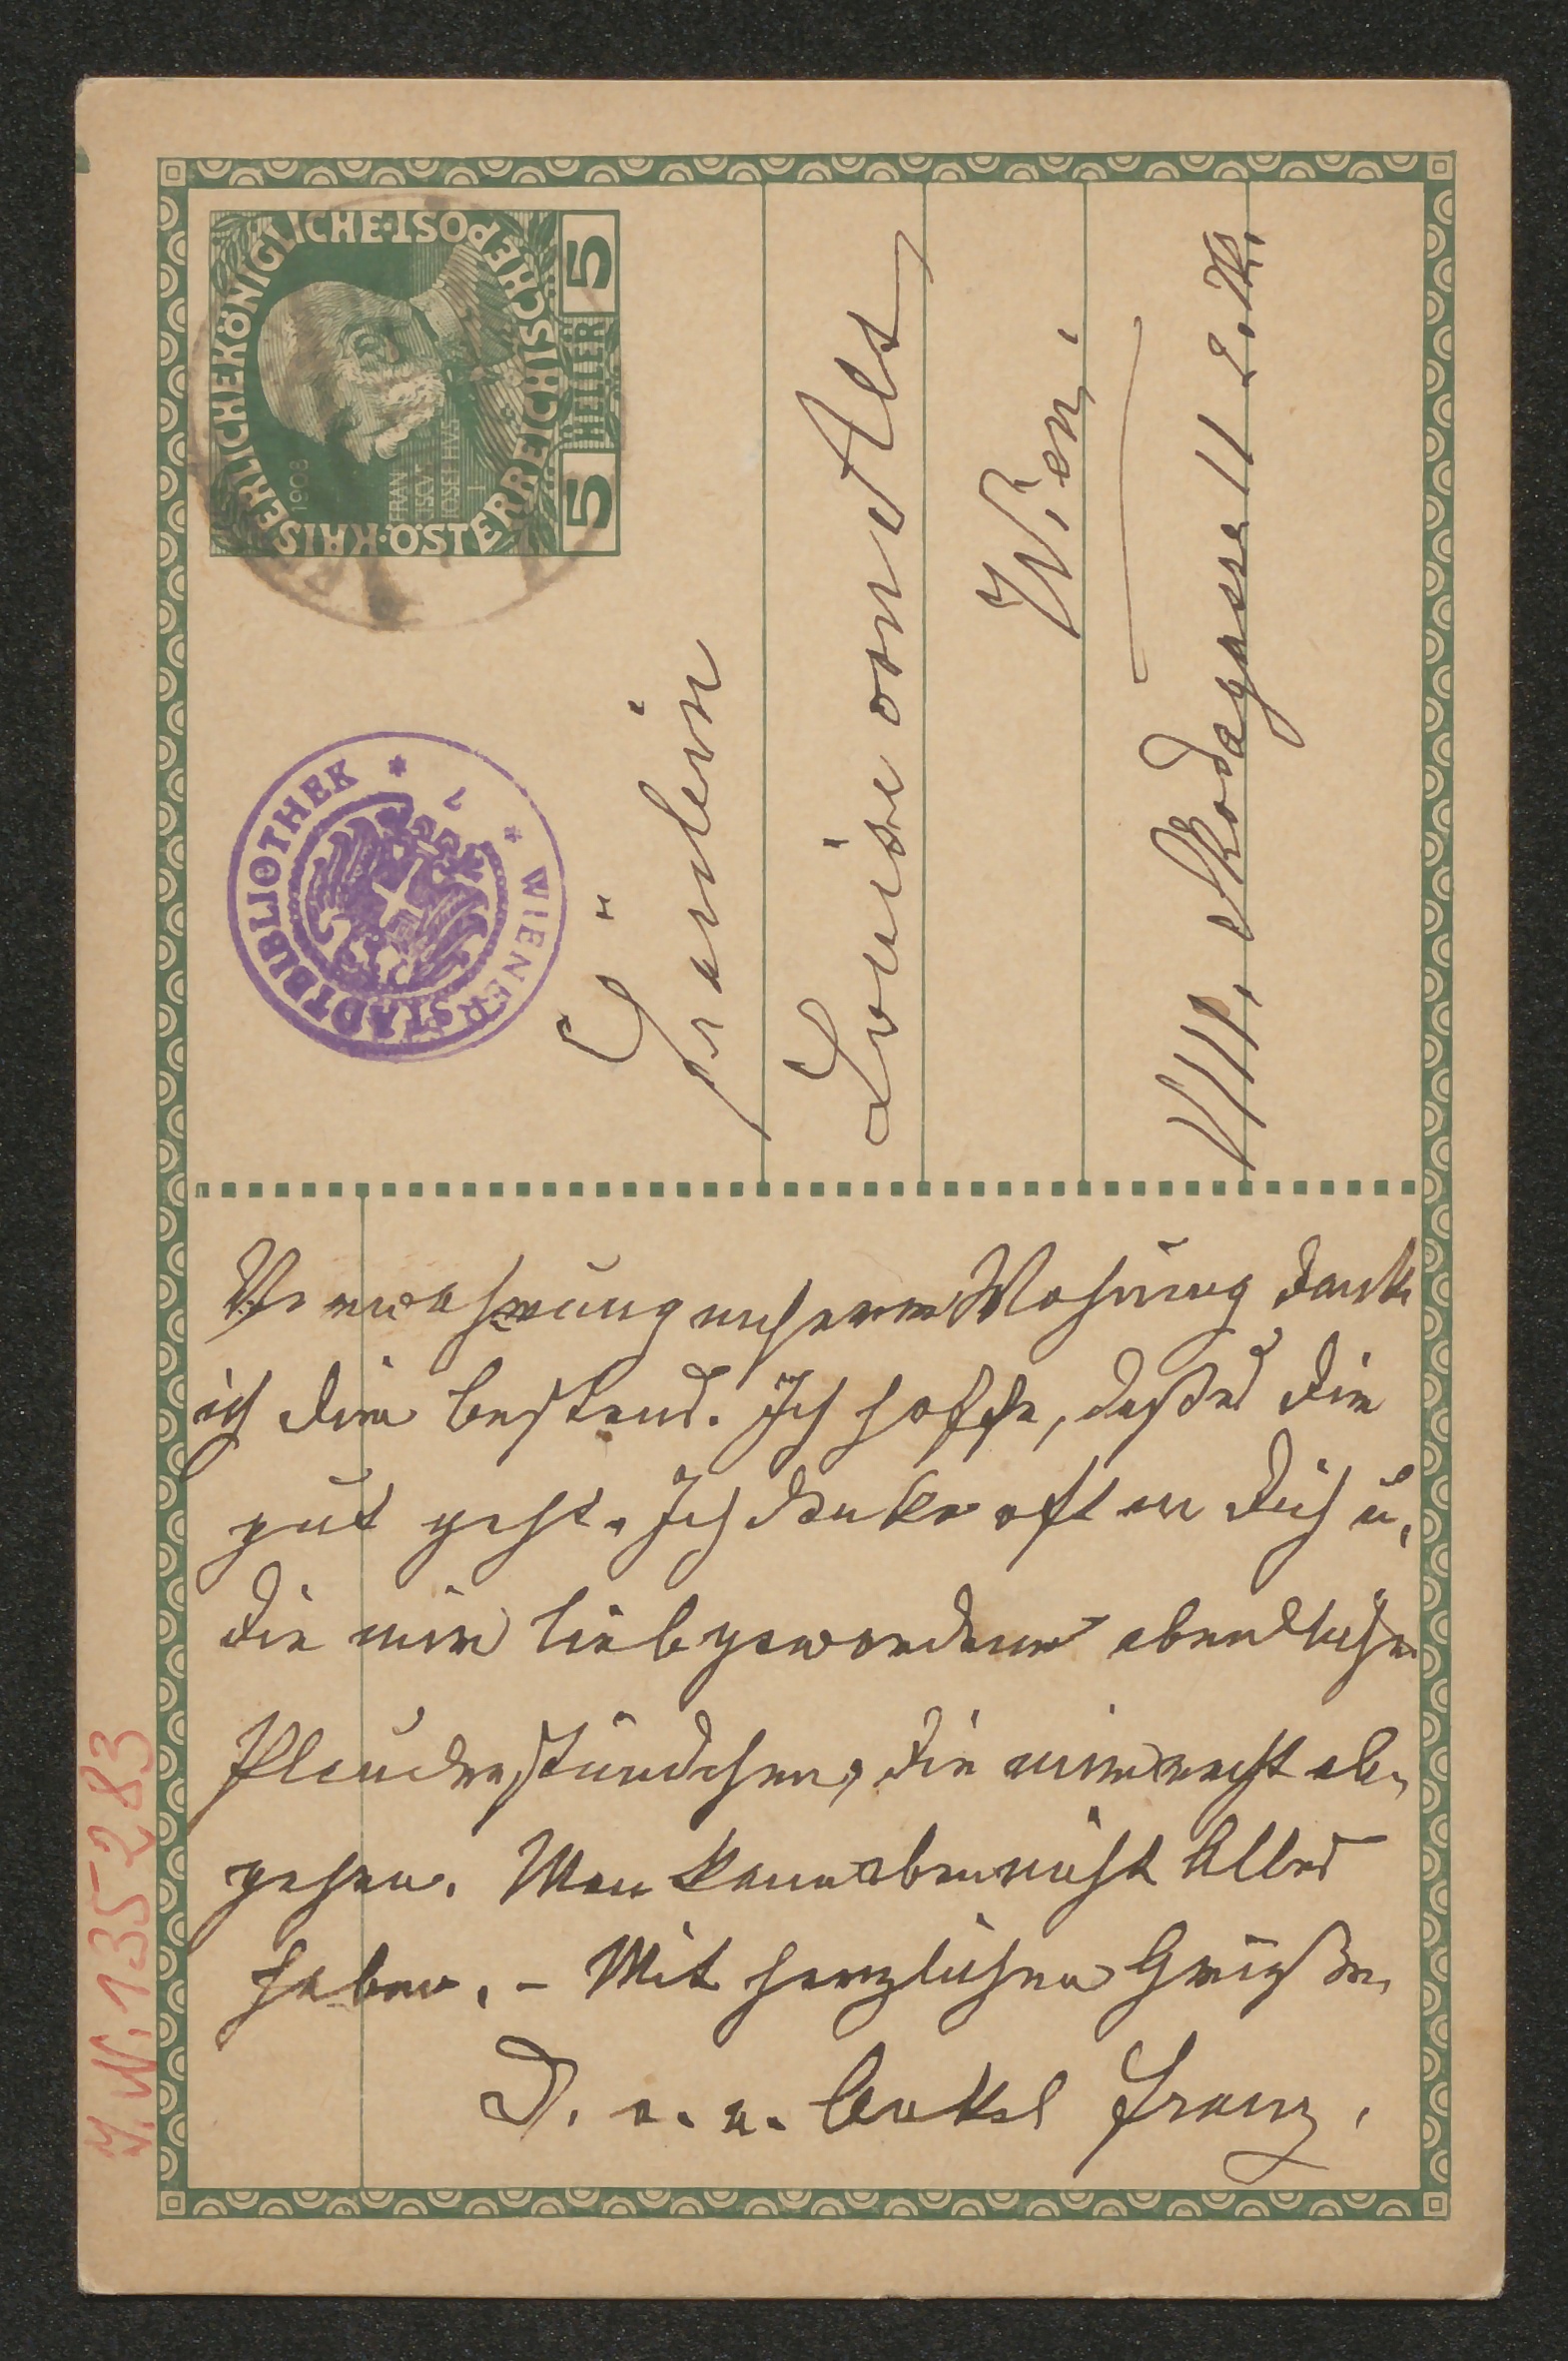 KAISERLICHE KÖNIGLICHE·ÖSTERREICHISCHE POST
1908
FRAN
ISCVS
IOSEPHVS
I
5 HELLER 5
WIENER STADTBIBLIOTHEK
1
Fräulein
Louise von Alt
Wien,
VIII, Skodagasse 11 2. Th.
Verwahrung unserer Wohnung danke
ich dir bestens. Ich hoffe, daß es dir
gut geht. Ich denke oft an dich u.
die mir liebgewordenen abendlichen
Plauderstündchen, die mir recht ab-
gehen. Man kann eben nicht Alles
haben. – Mit herzlichen Grüßen
D. a. a. Onkel Franz.
J. N. 135283